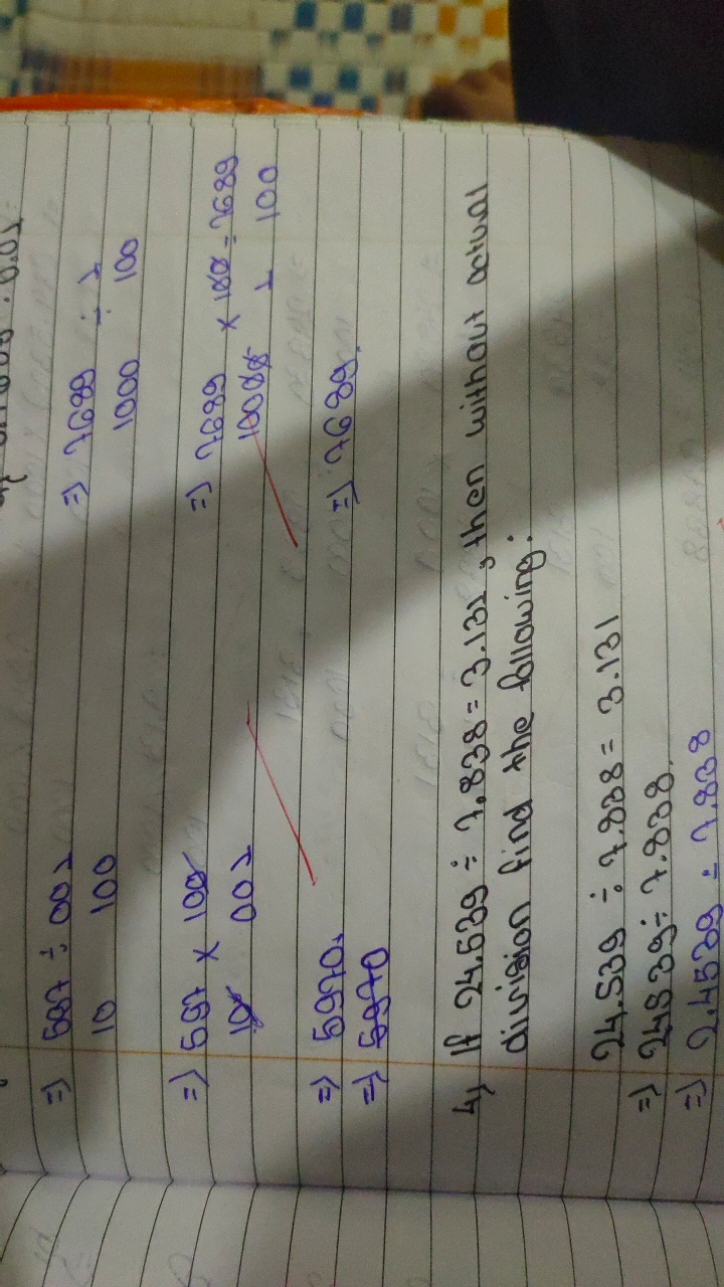 => 597 ÷ 001
10 100
=> 597 x 100
10 001
=> 5970.
=> 5970
=> 7689 ÷ 1
1000 100
=> 7689 x 100 = 7689
1 100
=> 7689.
4) If 24.539 ÷ 7.838 = 3.131, then without actual
division find the following:
24.539 ÷ 7.838 = 3.131
=> 24539 ÷ 7.838.
=> 2.4539 ÷ 7.838